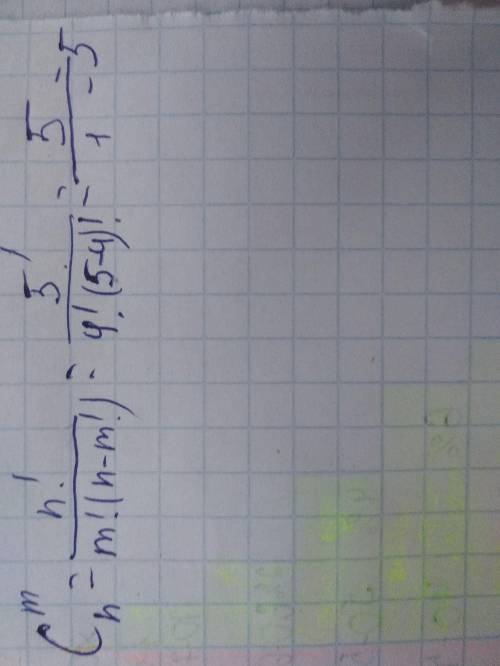 C_n^m = n! / m!(n-m!) = 5! / 4!(5-4)! = 5 / 1 = 5